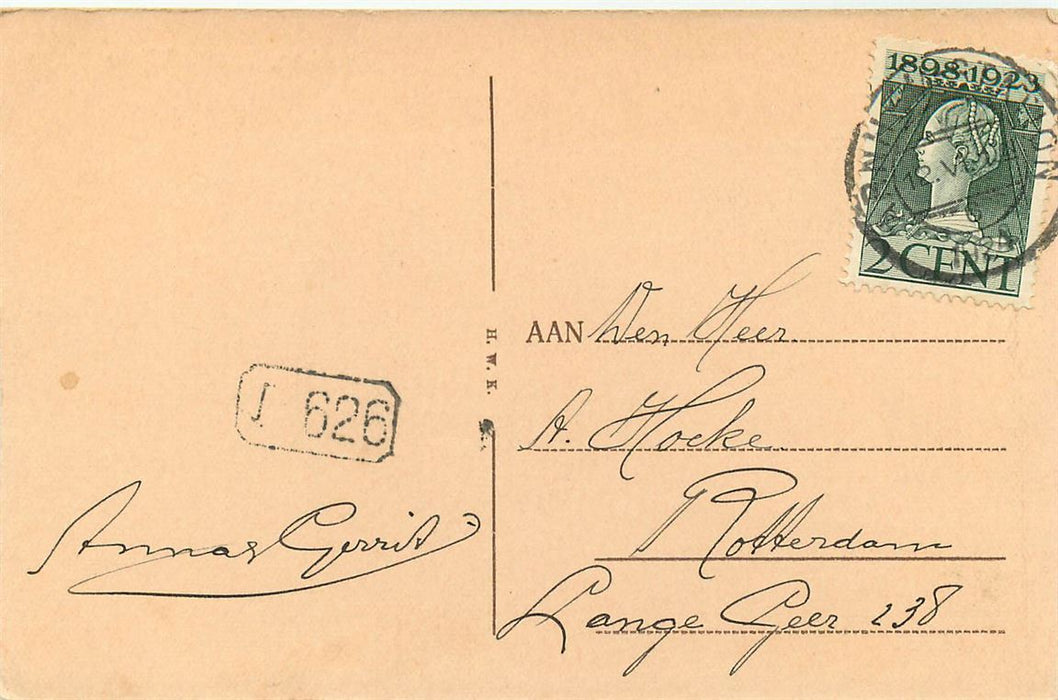 1898·1923
2 CENT
AAN Den Heer
A. Hocke
Rotterdam
Lange Geer 238
H. W. K.
J 626
Anna & Gerrit